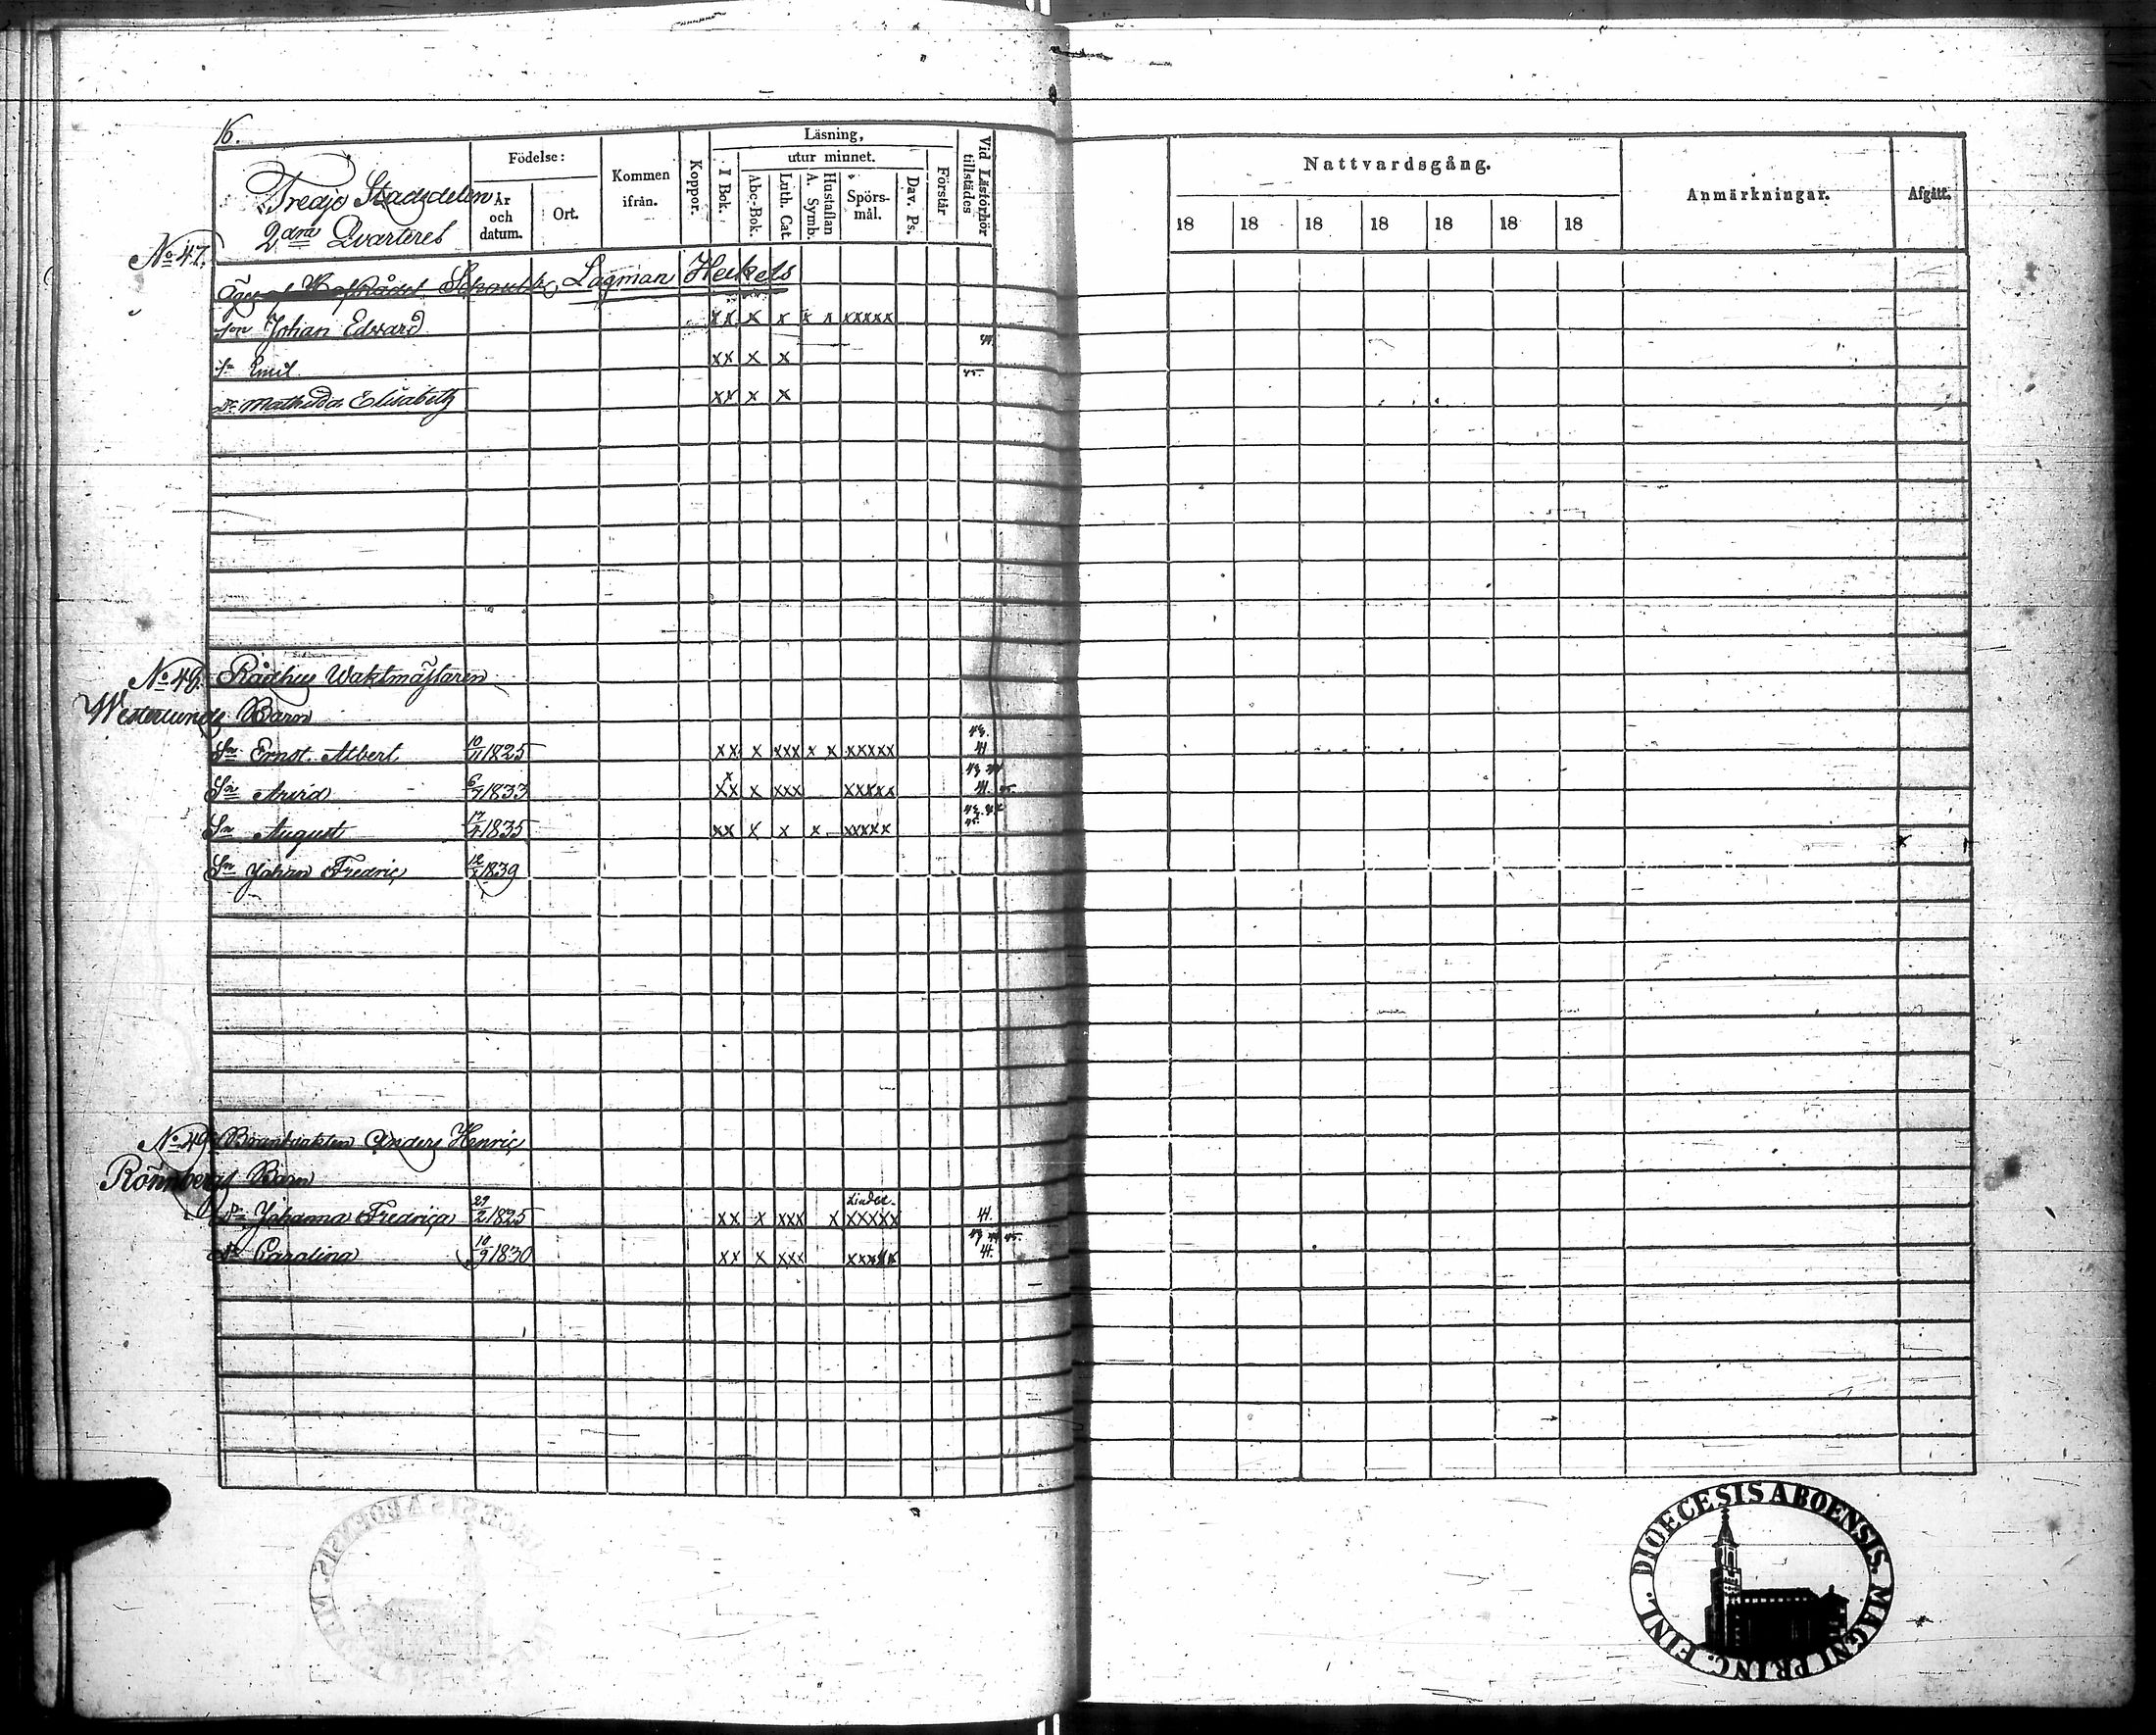 16.
Tredje Stadsdelen
2dra Qvarteret
Födelse:
År och datum.
Ort.
Kommen ifrån.
Koppor.
Läsning,
I Bok.
utur minnet.
Abc-Bok.
Luth. Cat.
A. Symb.
Hustaflan
Spörs-mål.
Dav. Ps.
Förstår
Vid Läsförhör tillstädes
Nattvardsgång.
18 18 18 18 18 18 18
Anmärkningar.
Afgått.
No 47.
Lagman Heikels
Son Johan Edvard xx x x x x xxxxx
Sn Emil xx x x
Dr Mathilda Elisabeth xx x x
45.
No 48. Rådhus Waktmästaren
Westerlunds Barn
43.
Sn Ernst Albert 10/11 1825 xx x xxx x x xxxxx 41
Sn Arvid 6/7 1833 xx x xxx xxxxx 41. 45.
Sn August 17/4 1835 xx x x x xxxxx 45.
Sn Johan Fredric 1839
No 49 Brandvakten Anders Henric
Rönnbergs Barn
Dr Johanna Fredrica 29/2 1825 xx x xxx x xxxxx 41.
43 44 45.
Dr Carolina 10/9 1830 xx x xxx xxxxx 41.
DIOECESIS ABOENSIS. MAGNI PRINC. FINL.